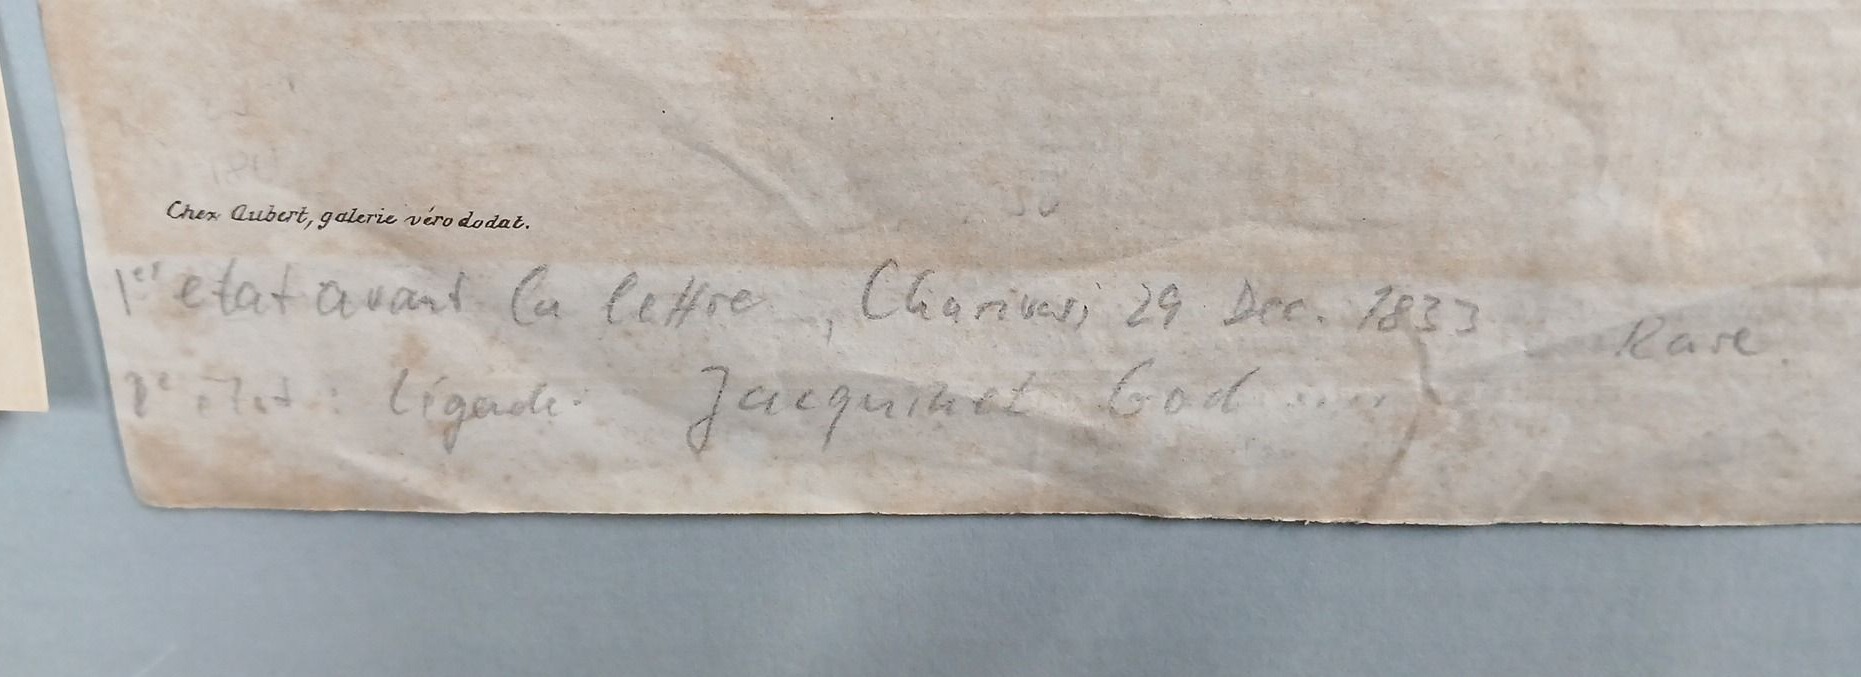 Chez Aubert, galerie véro dodat.
1er etat avant la lettre, Charivari 29 Dec. 1833
Rare.
2e état : légende: Jacquinet God .....